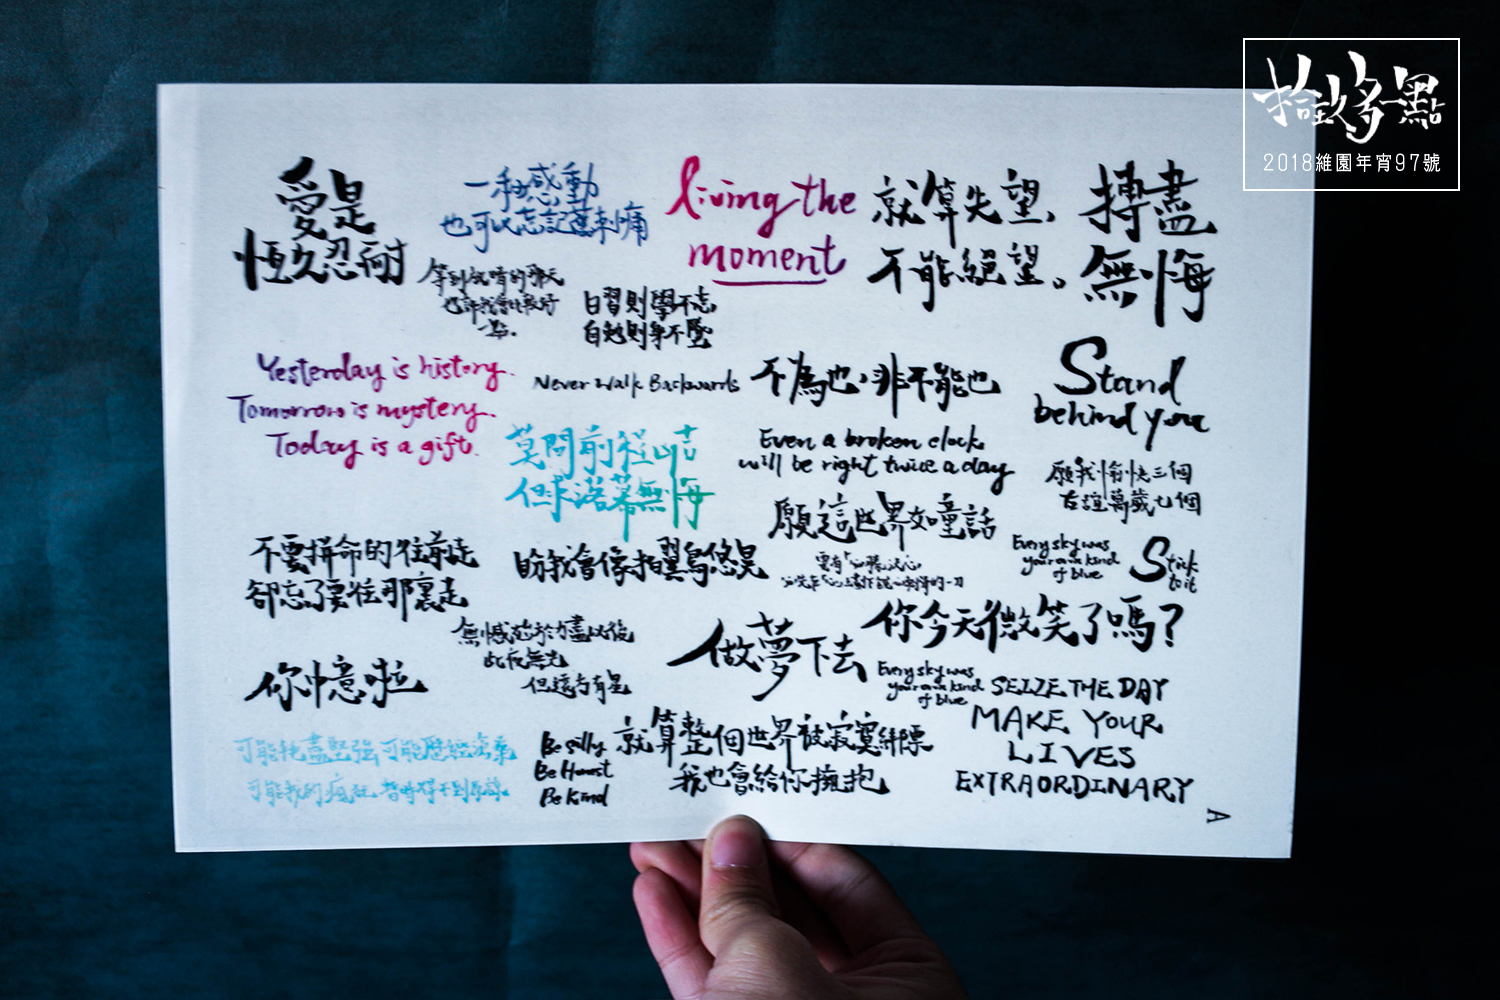 拾玖多一點
2018維園年宵97號
愛是
恆久忍耐
一種感動
也可以忘記舊刺痛
living the
moment
就算失望、
不能絕望。
搏盡
無悔
等到放晴的那天
也許我會比較好
一點。
日習則學不忘
自勉則身不墜
Yesterday is history.
Tomorrow is mystery.
Today is a gift.
Never Walk Backwards
不為也，非不能也
Stand
behind you
莫問前程凶吉
但求落幕無悔
Even a broken clock
will be right twice a day
願我愉快三個
友誼萬歲七個
願這世界如童話
Every sky was
your own kind
of blue
Stick
to it
不要拼命的往前走
卻忘了要往那裏走
盼我會像拍翼鳥悠昊
無憾於力盡以後
此夜無光
但遠方有星
做夢下去
你今天微笑了嗎？
你中意啦
Every sky was
your own kind
of blue
SEIZE THE DAY
MAKE YOUR
LIVES
EXTRAORDINARY
可能耗盡堅強 可能歷經滄桑
可能我的瘋狂 暫時得不到原諒
Be silly
Be Honest
Be Kind
就算整個世界被寂寞綁票
我也會給你擁抱
A